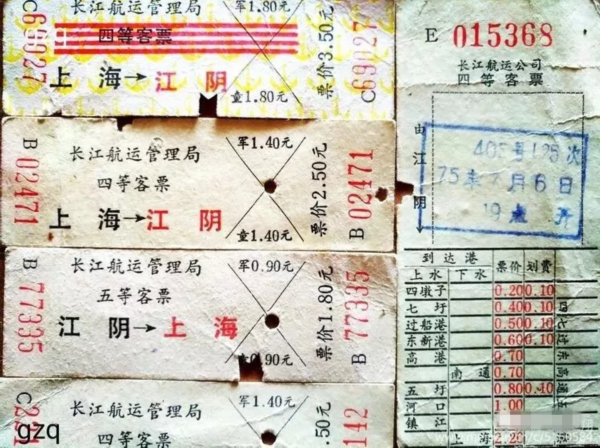 C69027
长江航运管理局
四等客票
上海→江阴
军1.80元
童1.80元
票价3.50元
C69027
B02471
长江航运管理局
四等客票
上海→江阴
军1.40元
童1.40元
票价2.50元
B02471
B77335
长江航运管理局
五等客票
江阴→上海
军0.90元
童0.90元
票价1.80元
B77335
长江航运管理局
四等客票
军1.40元
.50元
142
gzq
E 015368
长江航运公司
四等客票
由江阴
405号125次
75年7月6日
19点 开
到达港
上水 下水 票价 划费
四墩子 0.20 0.10
七圩 0.40 0.10
过船港 0.50 0.10
东新港 0.60 0.10
高港 0.70
南通 0.70
五圩 0.80 0.10
河口 1.00
镇江
上海 2.20